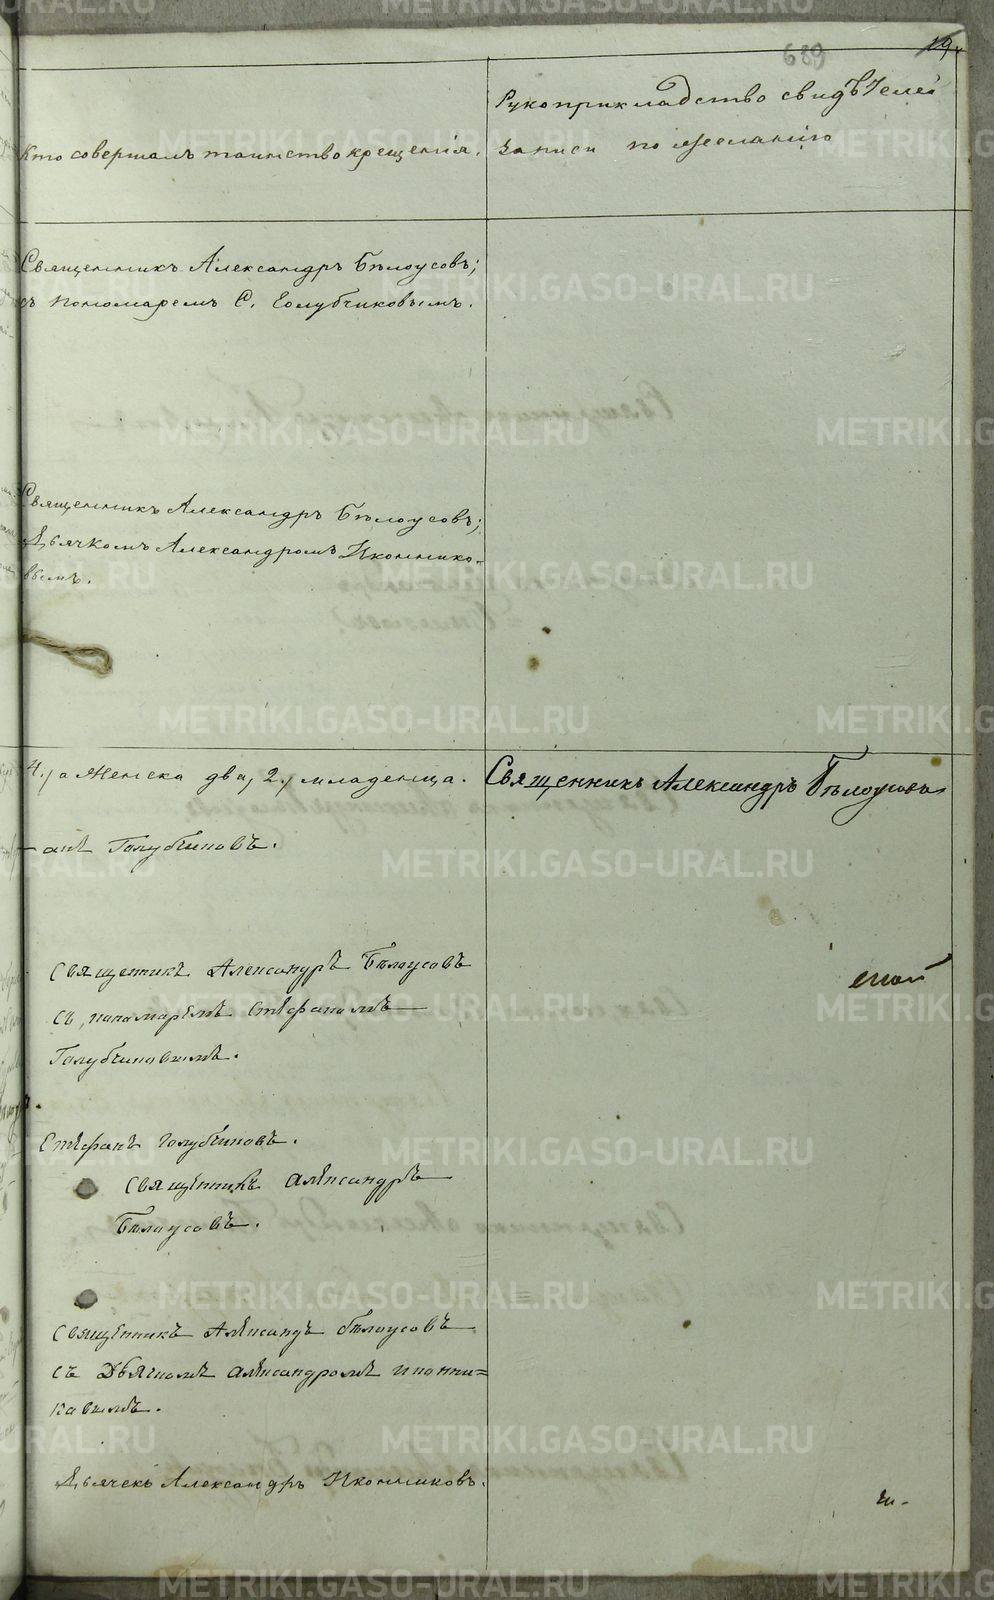 689
19
Кто совершалъ таинство крещенія.
Рукоприкладство свидѣтелей
записи по желанію
Священникъ Александръ Бѣлоусовъ;
съ пономаремъ С. Голубчиковымъ.
Священникъ Александръ Бѣлоусовъ;
Дьячкомъ Александромъ Иконнико-
вымъ.
4, а женска два, 2, младенца.
Священникъ Александръ Бѣлоусовъ
анъ Голубчиковъ.
Священникъ Александръ Бѣлоусовъ
съ, понамаремъ Стефаномъ
Голубчиковымъ.
Стефанъ Голубчиковъ.
Священникъ Александръ
Бѣлоусовъ.
Священникъ Александъ Бѣлоусовъ
съ Дьячкомъ Александромъ Иконни=
кавымъ.
Дьячекъ Александръ Иконниковъ.
METRIKI.GASO-URAL.RU